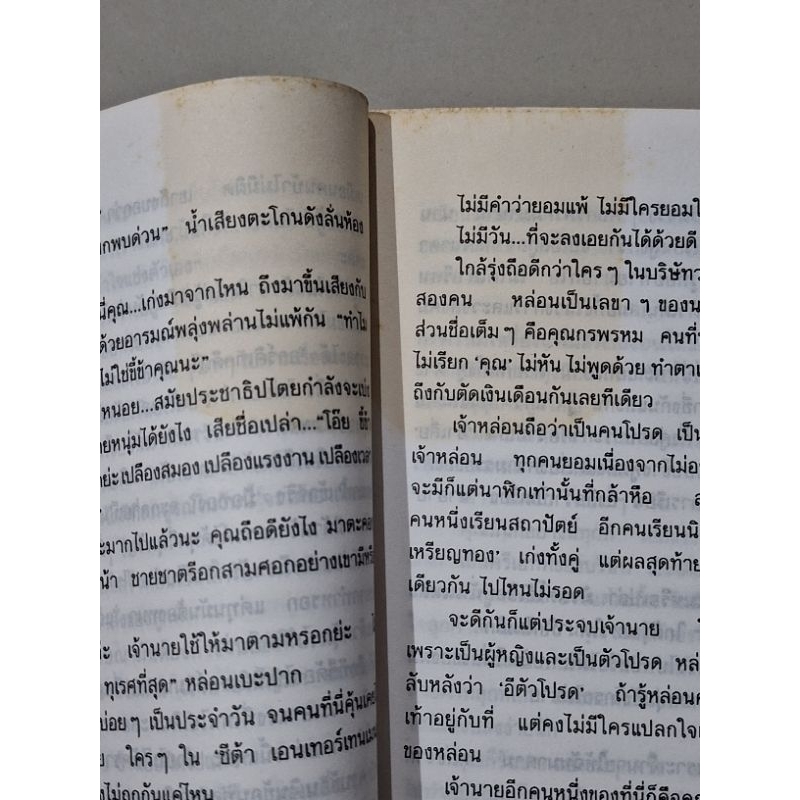 กพบด่วน” น้ำเสียงตะโกนดังลั่นห้อง
นี่คุณ...เก่งมาจากไหน ถึงมาขึ้นเสียงกับ
ด้วยอารมณ์พลุ่งพล่านไม่แพ้กัน “ทำไม
ไม่ใช่ขี้ข้าคุณนะ”
หน่อย...สมัยประชาธิปไตยกำลังจะเบ่ง
ยหนุ่มได้ยังไง เสียชื่อเปล่า...“โอ๊ย ขี้ข้า
ย่ะเปลืองสมอง เปลืองแรงงาน เปลืองเวลา
ะมากไปแล้วนะ คุณถือดียังไง มาตะคอก
น้า ชายชาตรีอกสามศอกอย่างเขามีหรือ
ะ เจ้านายใช้ให้มาตามหรอกย่ะ
ทุเรศที่สุด” หล่อนเบะปาก
บ่อยๆ เป็นประจำวัน จนคนที่นี่คุ้นเคย
ใครๆ ใน ‘ซีต้า เอนเทอร์เทนเมน
ไม่ถูกกันแค่ไหน
ไม่มีคำว่ายอมแพ้ ไม่มีใครยอมใ
ไม่มีวัน...ที่จะลงเอยกันได้ด้วยดี
ใกล้รุ่งถือดีกว่าใครๆ ในบริษัทว
สองคน หล่อนเป็นเลขา ฯ ของน
ส่วนชื่อเต็มๆ คือคุณกรพรหม คนที่
ไม่เรียก ‘คุณ’ ไม่หัน ไม่พูดด้วย ทำตาเ
ถึงกับตัดเงินเดือนกันเลยทีเดียว
เจ้าหล่อนถือว่าเป็นคนโปรด เป็
เจ้าหล่อน ทุกคนยอมเนื่องจากไม่อ
จะมีก็แต่นาฬิกเท่านั้นที่กล้าหือ ส
คนหนึ่งเรียนสถาปัตย์ อีกคนเรียนนิ
เหรียญทอง’ เก่งทั้งคู่ แต่ผลสุดท้าย
เดียวกัน ไปไหนไม่รอด
จะดีกันก็แต่ประจบเจ้านาย
เพราะเป็นผู้หญิงและเป็นตัวโปรด หล
ลับหลังว่า ‘อีตัวโปรด’ ถ้ารู้หล่อนค
เท้าอยู่กับที่ แต่คงไม่มีใครแปลกใจเ
ของหล่อน
เจ้านายอีกคนหนึ่งของที่นี่ก็คือคุ